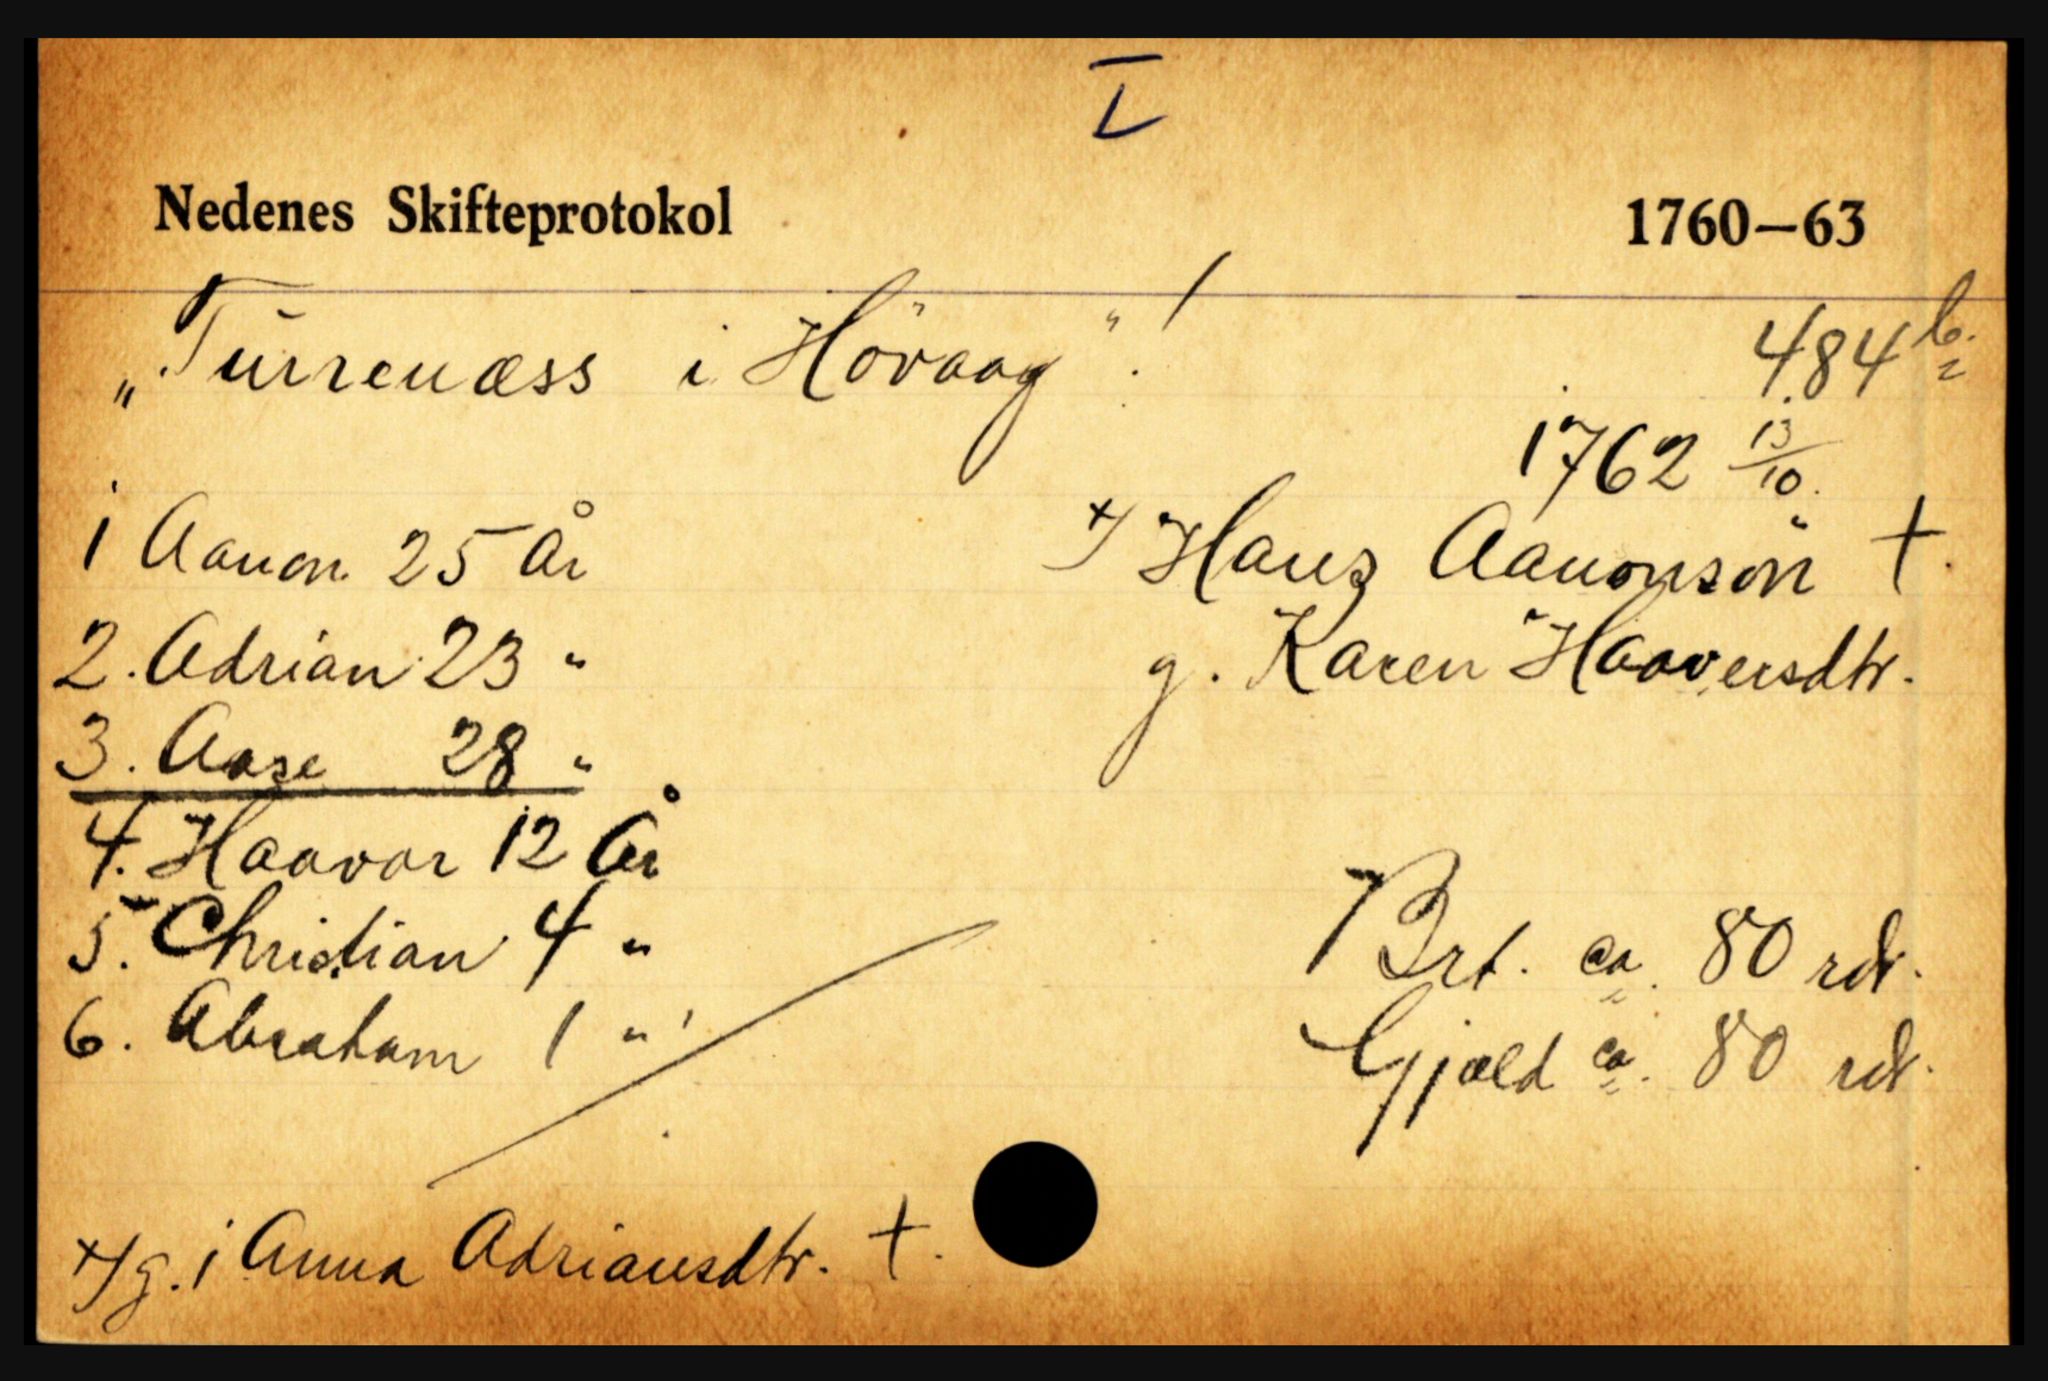 I
Nedenes Skifteprotokol 1760—63
„Turrenæss i Hövaag"!
484 b.
1762 13/10.
1 Aanon 25 År
+/ Hans Aanonsön +.
2. Adrian 23 "
g. Karen Haaversdtr.
3. Aase 28 "
4. Haavor 12 År
5. Christian 4 "
Brt. ca. 80 rdr.
6. Abraham 1 "
Gjæld ca. 80 rdr.
+/ g. 1 Anna Adriansdtr. +.